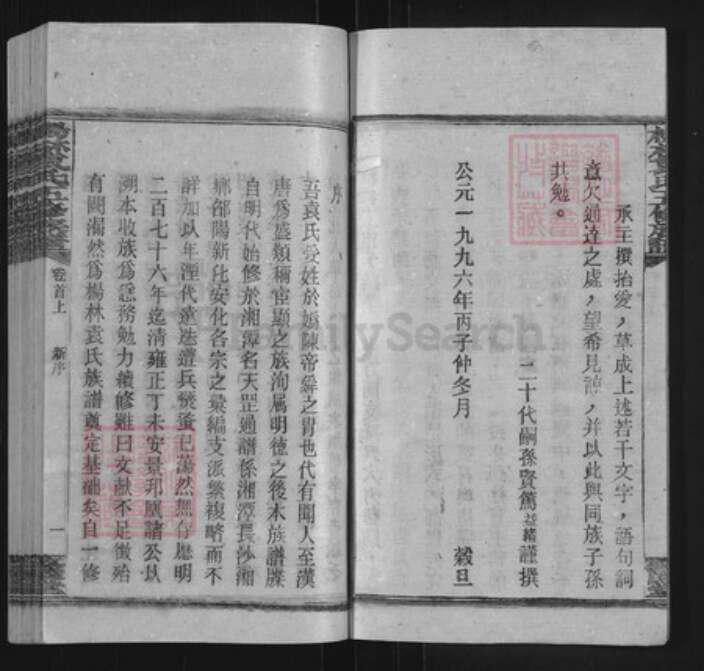 承主撰抬爱，草成上述若干文字，語句詞
意欠通達之處，望希見諒，并以此與同族子孫
共勉。
二十代嗣孫賢篤 謹撰
公元一九九六年丙子仲冬月 穀旦
序
吾袁氏受姓於媯陳帝舜之胄也代有聞人至漢
唐爲盛類稱宦顯之族洵属明德之後本族譜牒
自明代始修於湘潭名天罡通譜係湘潭長沙湘
鄉邵陽新化安化各宗之彙編支派繁複略而不
詳加以年湮代遠迭遭兵燹蕩然無存歷明
二百七十六年迄清雍正丁未安景邦廣諸公以
溯本收族爲急務勉力續修雖曰文獻不足徵殆
有闕漏然爲楊林袁氏族譜奠定基础矣自一修
卷首上 新序 一
FamilySearch